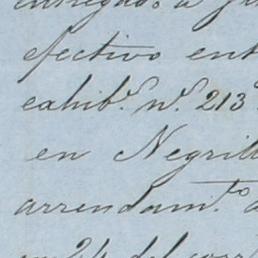 entregado a
efectivo ent
exhib.º n.º 213
en Negrill
arrendam.to a
en 24 del corr